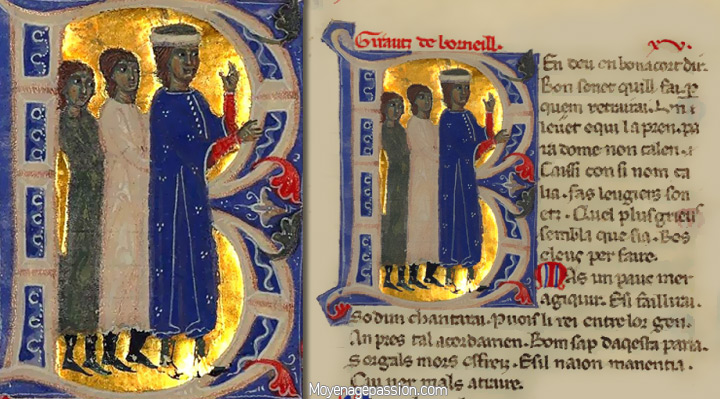 Girautz de borneill. xv.
En deu en bona cort dir.
Bon sonet quill fai. p
quem retrairai. Lr
leuet e qui la pren. pa
ra dome non calen.
Caissi con si nom ca
lia. fas leugiers son
etz. Quel plus grieus
sembla que sia. Bos
e leuç per faire.
Mas un pauc mer
a giquir. Esi faillirai.
So dun chantarai. Puois li rei entre lor gen.
An pres tal acordamen. Bom sap daqesta paria.
Sorgals mors esfreiz. Esil naion manentia.
mals atraire.
Moyenagepassion.com